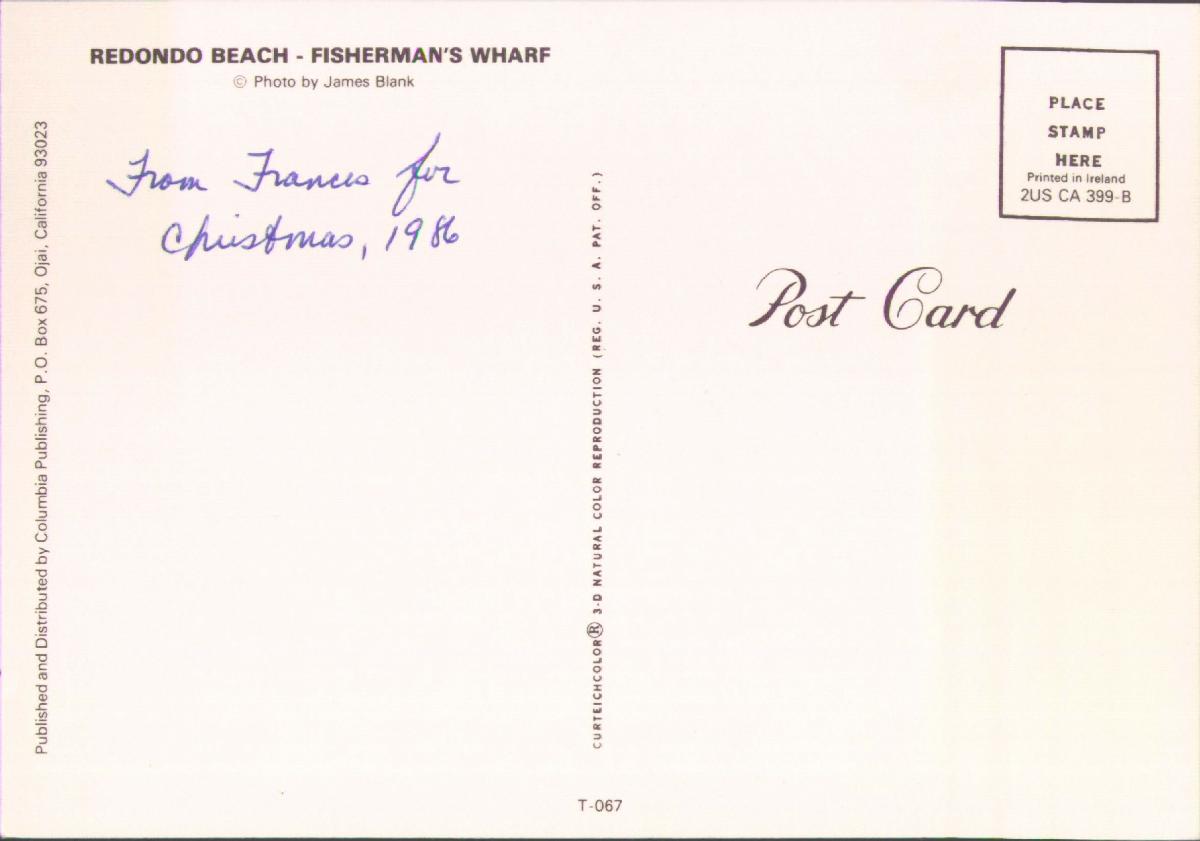 REDONDO BEACH - FISHERMAN'S WHARF
© Photo by James Blank
From Frances for
Christmas, 1986
Published and Distributed by Columbia Publishing, P.O. Box 675, Ojai, California 93023
CURTEICHCOLOR® 3-D NATURAL COLOR REPRODUCTION (REG. U. S. A. PAT. OFF.)
PLACE
STAMP
HERE
Printed in Ireland
2US CA 399-B
Post Card
T-067